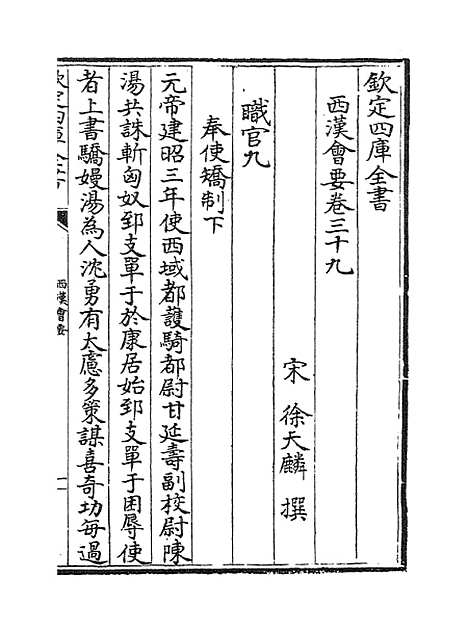 欽定四庫全書
西漢會要卷三十九
宋 徐天麟 撰
職官九
奉使矯制下
元帝建昭三年使西域都護騎都尉甘延壽副校尉陳
湯共誅斬匈奴郅支單于於康居始郅支單于困辱使
者上書驕嫚湯為人沈勇有大慮多策謀喜奇功每過
欽定四庫全書
西漢會要
一